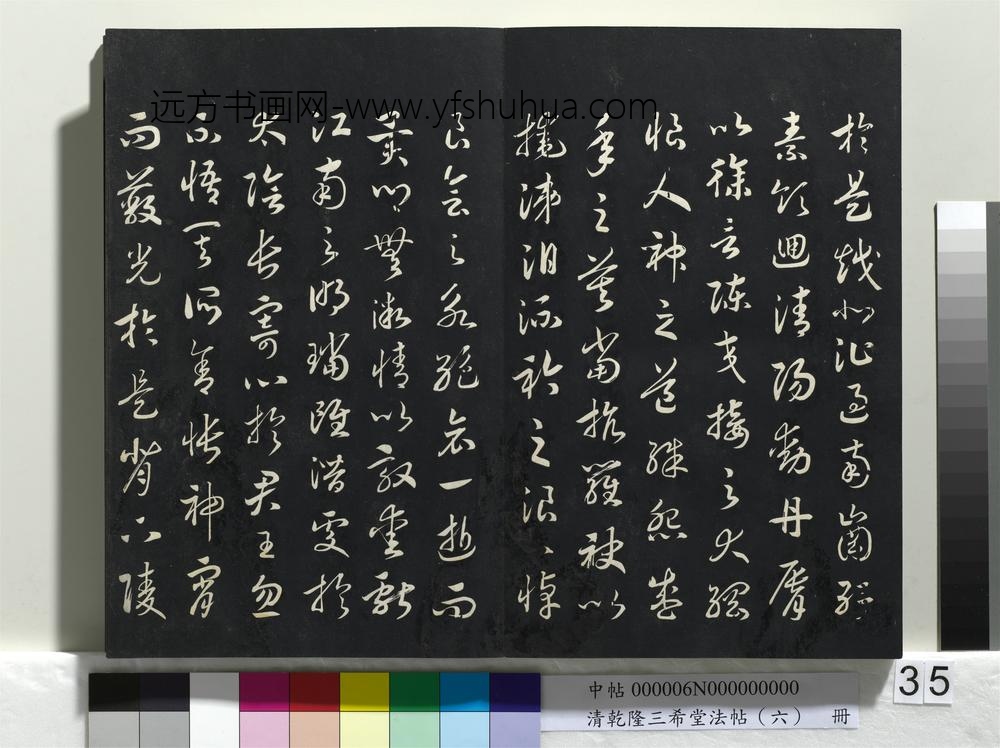 远方书画网-www.yfshuhua.com
於是越北沚過南崗紆
素領迴清陽動丹脣
以徐言陳交接之大綱
恨人神之道殊怨盛
年之莫當抗羅袂以
掩涕泪流衿之浪〻悼
良會之永絕哀一逝而
異鄉無微情以效愛獻
江南之明璫雖潛處於
太陰長寄心於君王忽
不悟其所舍悵神宵
而蔽光於是背下陵
35
中帖 000006N000000000
清乾隆三希堂法帖（六） 冊